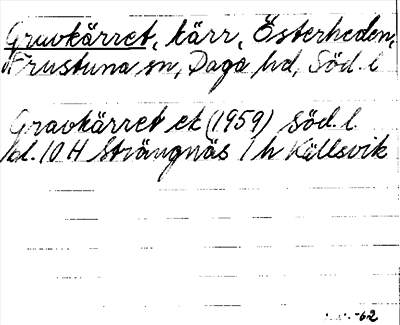 Gravkärret, kärr, Österheden,
Frustuna sn, Daga hd, Söd. l
Gravkärret ek (1959) Söd. l.
bl. 10 H Strängnäs 1 h Källsvik
-62